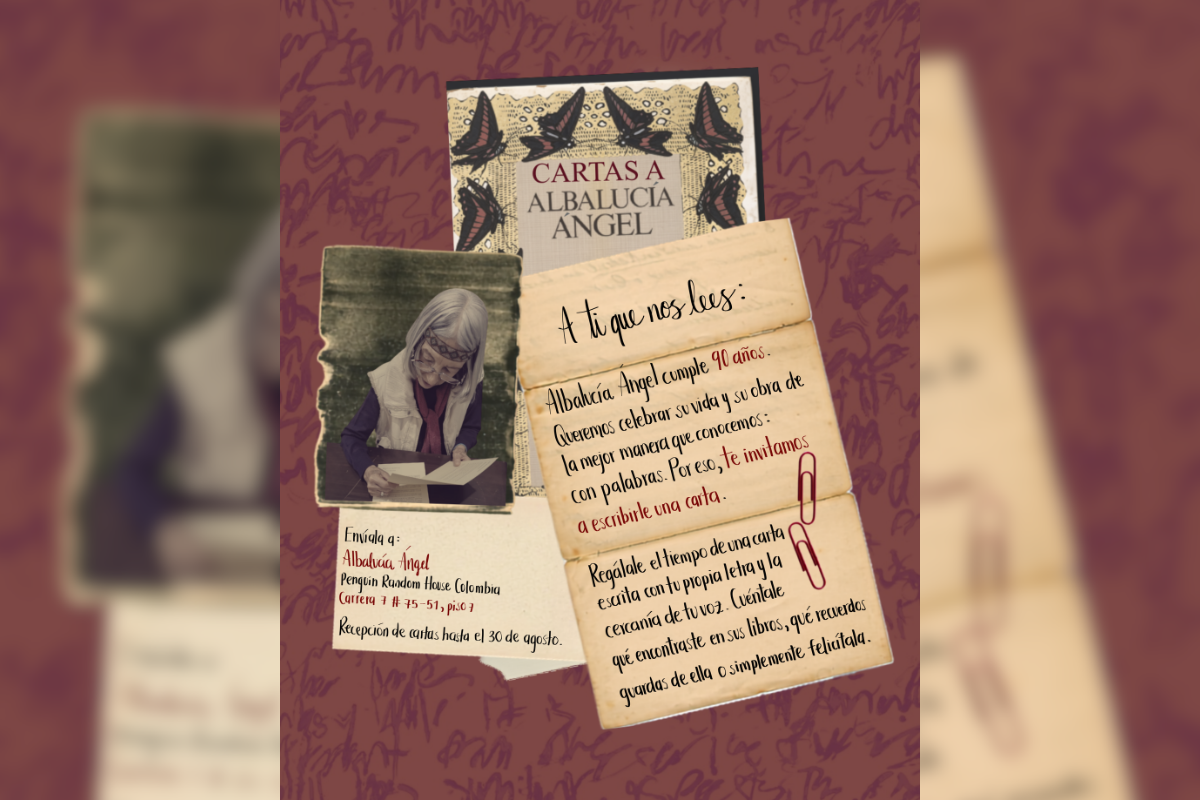 CARTAS A
ALBALUCÍA
ÁNGEL
A ti que nos lees:
Albalucía Ángel cumple 90 años.
Queremos celebrar su vida y su obra de
la mejor manera que conocemos:
con palabras. Por eso, te invitamos
a escribirle una carta.
Regálale el tiempo de una carta
escrita con tu propia letra y la
cercanía de tu voz. Cuéntale
qué encontraste en sus libros, qué recuerdos
guardas de ella o simplemente felicítala.
Envíala a:
Albalucía Ángel
Penguin Random House Colombia
Carrera 7 # 75-51, piso 7
Recepción de cartas hasta el 30 de agosto.